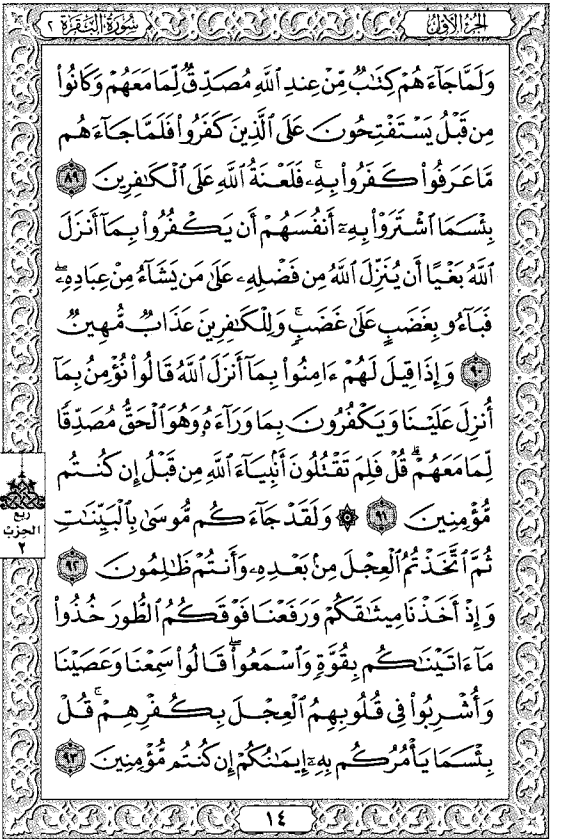 سُورَةُ البَقَرَةِ ٢
الجُزْءُ الأَوَّلُ
وَلَمَّا جَآءَهُمْ كِتَٰبٌ مِّنْ عِندِ ٱللَّهِ مُصَدِّقٌ لِّمَا مَعَهُمْ وَكَانُوا۟
مِن قَبْلُ يَسْتَفْتِحُونَ عَلَى ٱلَّذِينَ كَفَرُوا۟ فَلَمَّا جَآءَهُم
مَّا عَرَفُوا۟ كَفَرُوا۟ بِهِۦ ۚ فَلَعْنَةُ ٱللَّهِ عَلَى ٱلْكَٰفِرِينَ ٨٩
بِئْسَمَا ٱشْتَرَوْا۟ بِهِۦٓ أَنفُسَهُمْ أَن يَكْفُرُوا۟ بِمَآ أَنزَلَ
ٱللَّهُ بَغْيًا أَن يُنَزِّلَ ٱللَّهُ مِن فَضْلِهِۦ عَلَىٰ مَن يَشَآءُ مِنْ عِبَادِهِۦ ۖ
فَبَآءُو بِغَضَبٍ عَلَىٰ غَضَبٍ ۚ وَلِلْكَٰفِرِينَ عَذَابٌ مُّهِينٌ
٩٠ وَإِذَا قِيلَ لَهُمْ ءَامِنُوا۟ بِمَآ أَنزَلَ ٱللَّهُ قَالُوا۟ نُؤْمِنُ بِمَآ
أُنزِلَ عَلَيْنَا وَيَكْفُرُونَ بِمَا وَرَآءَهُۥ وَهُوَ ٱلْحَقُّ مُصَدِّقًا
لِّمَا مَعَهُمْ ۗ قُلْ فَلِمَ تَقْتُلُونَ أَنۢبِيَآءَ ٱللَّهِ مِن قَبْلُ إِن كُنتُم
مُّؤْمِنِينَ ٩١ ۞ وَلَقَدْ جَآءَكُم مُّوسَىٰ بِٱلْبَيِّنَٰتِ
ثُمَّ ٱتَّخَذْتُمُ ٱلْعِجْلَ مِنۢ بَعْدِهِۦ وَأَنتُمْ ظَٰلِمُونَ ٩٢
وَإِذْ أَخَذْنَا مِيثَٰقَكُمْ وَرَفَعْنَا فَوْقَكُمُ ٱلطُّورَ خُذُوا۟
مَآ ءَاتَيْنَٰكُم بِقُوَّةٍ وَٱسْمَعُوا۟ ۖ قَالُوا۟ سَمِعْنَا وَعَصَيْنَا
وَأُشْرِبُوا۟ فِى قُلُوبِهِمُ ٱلْعِجْلَ بِكُفْرِهِمْ ۚ قُلْ
بِئْسَمَا يَأْمُرُكُم بِهِۦٓ إِيمَٰنُكُمْ إِن كُنتُم مُّؤْمِنِينَ ٩٣
ربع
الحزب
٢
١٤